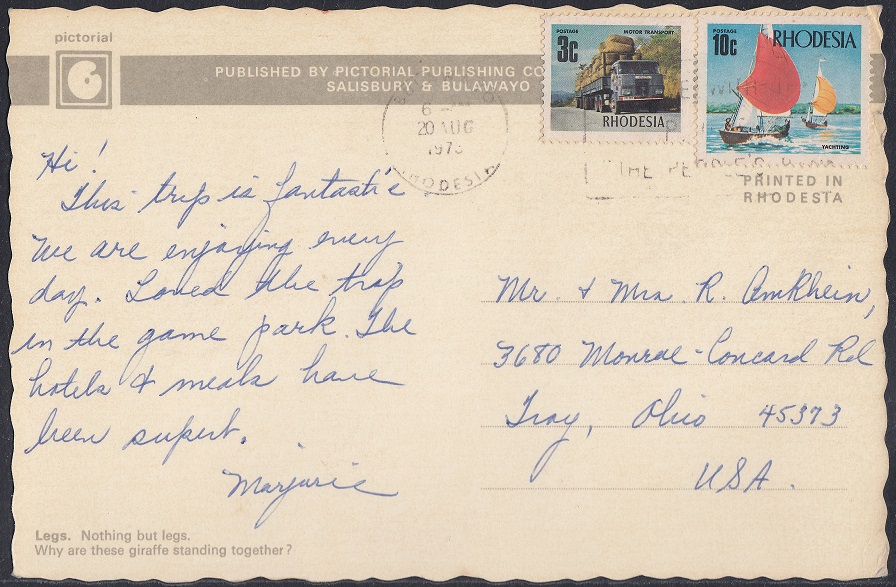 pictorial
PUBLISHED BY PICTORIAL PUBLISHING CO
SALISBURY & BULAWAYO
POSTAGE
3c
MOTOR TRANSPORT
RHODESIA
POSTAGE
10c
RHODESIA
YACHTING
20 AUG
RHODESIA
THE
PRINTED IN
RHODESIA
Hi!
This trip is fantastic
We are enjoying every
day. Loved the trip
in the game park. The
hotels & meals have
been superb.
Marjorie
Mr. & Mrs. R. AmRhein,
3680 Monroe-Concord Rd
Troy, Ohio 45373
USA.
Legs. Nothing but legs.
Why are these giraffe standing together?